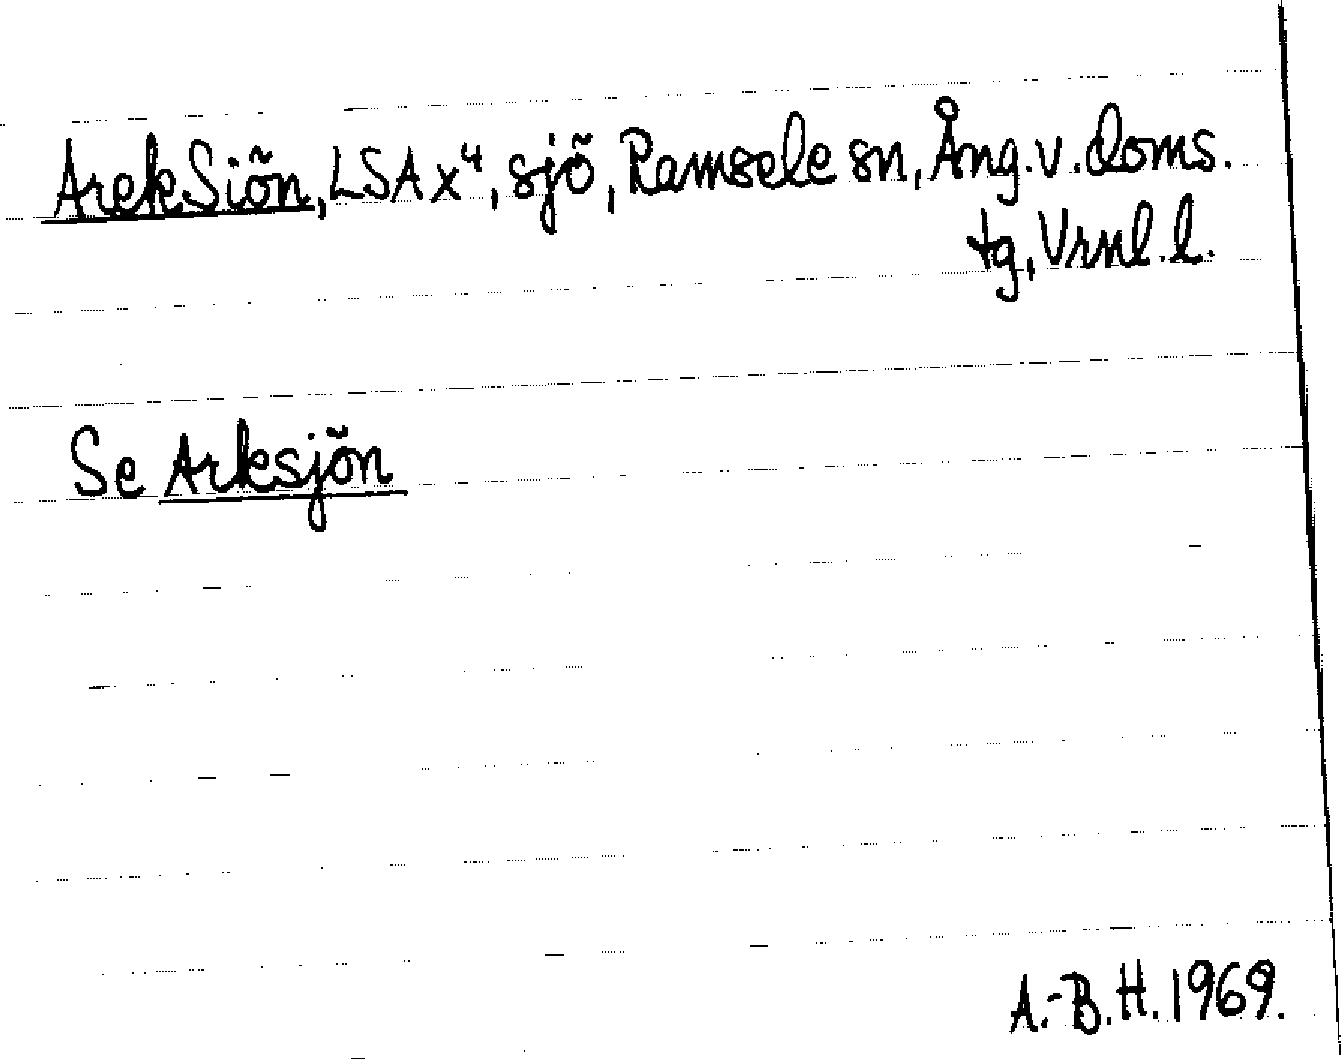 ArekSiön, LSA x⁴, sjö, Ramsele sn, Ång. v. doms.
tg, Vrnl. l.
Se Arksjön
A.-B.H. 1969.